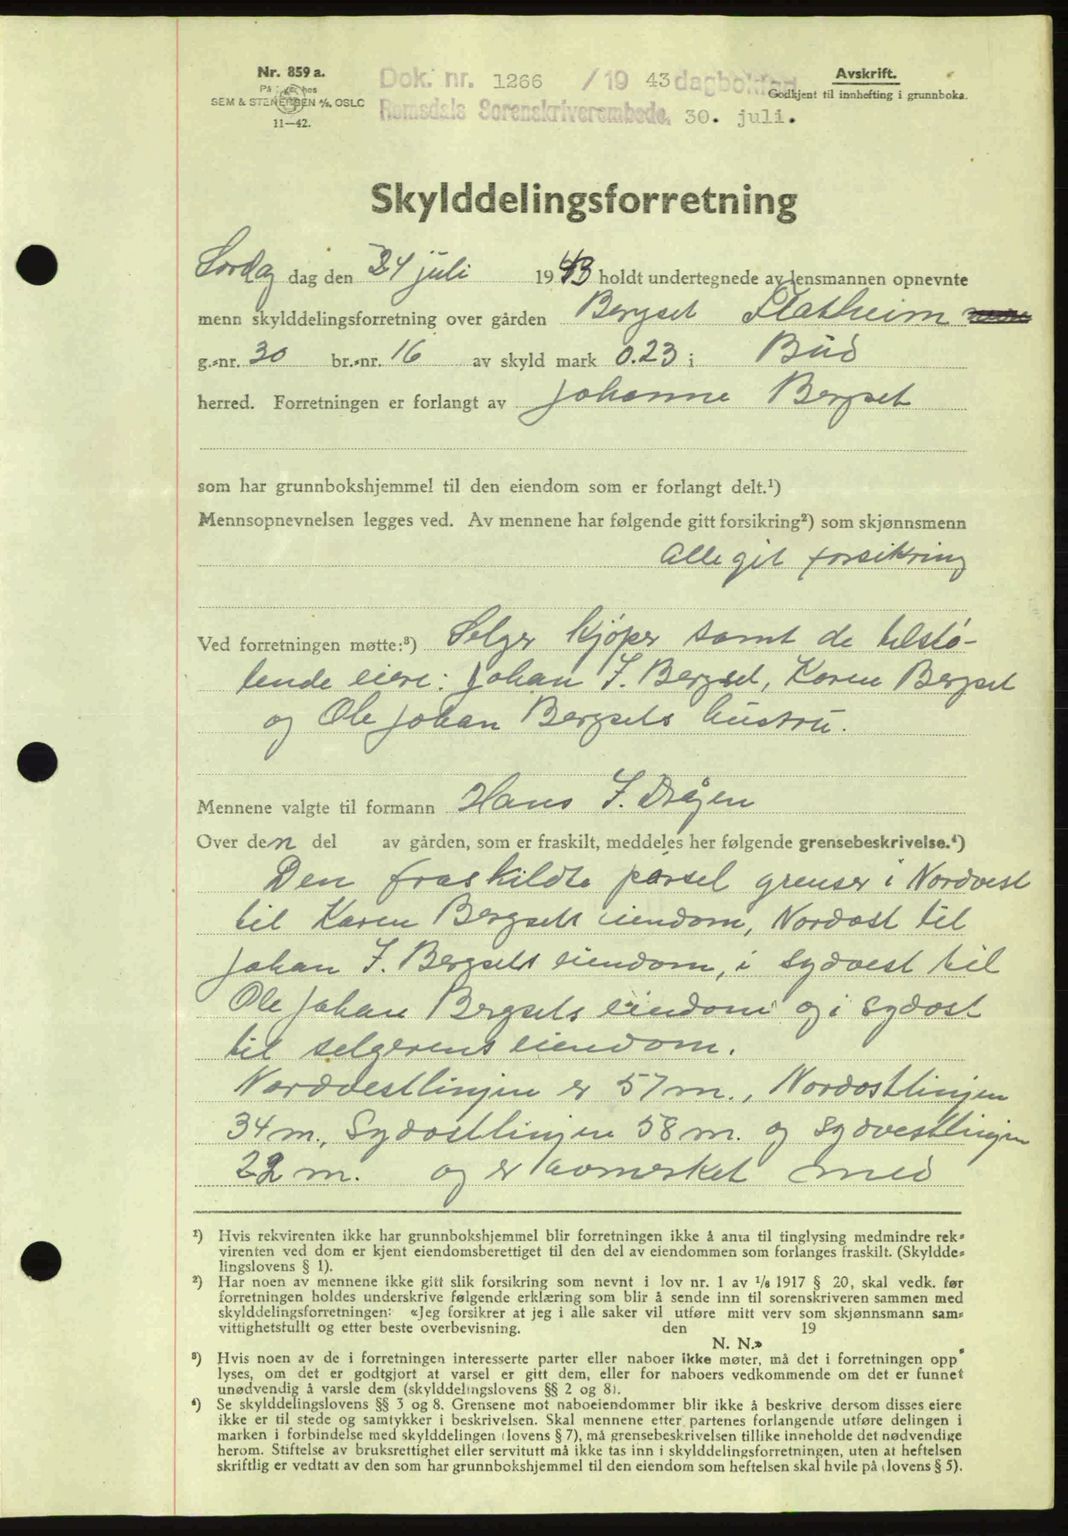 Nr. 859 a.
På hos
SEM & STENERSEN A/S, OSLO
11—42.
Dok. nr. 1266 /19 43 dagbokført
Romsdals Sorenskriverembede. 30. juli.
Avskrift.
Godkjent til innhefting i grunnboka.
Skylddelingsforretning
Lørdag dag den 24 juli 1943 holdt undertegnede av lensmannen opnevnte
menn skylddelingsforretning over gården Bergset Flatheim
g.-nr. 30 br.-nr. 16 av skyld mark 0.23 i Bud
herred. Forretningen er forlangt av Johanne Bergset
som har grunnbokshjemmel til den eiendom som er forlangt delt.¹)
Mennsopnevnelsen legges ved. Av mennene har følgende gitt forsikring²) som skjønnsmenn
Alle git forsikring
Ved forretningen møtte:³) Selger kjøper samt de tilstø-
tende eiere: Johan J. Bergset, Karen Bergset
og Ole Johan Bergsets hustru.
Mennene valgte til formann Hans J. Drågen
Over den del av gården, som er fraskilt, meddeles her følgende grensebeskrivelse.⁴)
Den fraskildte parsel grenser i Nordvest
til Karen Bergsets eiendom, Nordost til
Johan J. Bergsets eiendom, i sydvest til
Ole Johan Bergsets eiendom og i sydost
til selgerens eiendom.
Nordvestlinjen er 57 m., Nordostlinjen
34 m., Sydostlinjen 58 m. og sydvestlinjen
22 m. og er avmerket med
¹) Hvis rekvirenten ikke har grunnbokshjemmel blir forretningen ikke å anta til tinglysing medmindre rek-
virenten ved dom er kjent eiendomsberettiget til den del av eiendommen som forlanges fraskilt. (Skyldde-
lingslovens § 1).
²) Har noen av mennene ikke gitt slik forsikring som nevnt i lov nr. 1 av 1/6 1917 § 20, skal vedk. før
forretningen holdes underskrive følgende erklæring som blir å sende inn til sorenskriveren sammen med
skylddelingsforretningen: «Jeg forsikrer at jeg i alle saker vil utføre mitt verv som skjønnsmann sam-
vittighetsfullt og etter beste overbevisning. den 19
N. N.»
³) Hvis noen av de i forretningen interesserte parter eller naboer ikke møter, må det i forretningen opp-
lyses, om det er godtgjort at varsel er gitt dem, eller for naboers vedkommende om det er funnet
unødvendig å varsle dem (skylddelingslovens §§ 2 og 8).
⁴) Se skylddelingslovens §§ 3 og 8. Grensene mot naboeiendommer blir ikke å beskrive dersom disses eiere
ikke er til stede og samtykker i beskrivelsen. Skal mennene etter partenes forlangende utføre delingen i
marken i forbindelse med skylddelingen (lovens § 7), må grensebeskrivelsen tillike inneholde det nødvendige
herom. Stiftelse av bruksrettighet eller servitutt må ikke tas inn i skylddelingsforretningen, uten at heftelsen
skriftlig er vedtatt av den som har grunnbokshjemmel til den eiendom som heftelsen skal hvile på (lovens § 5).